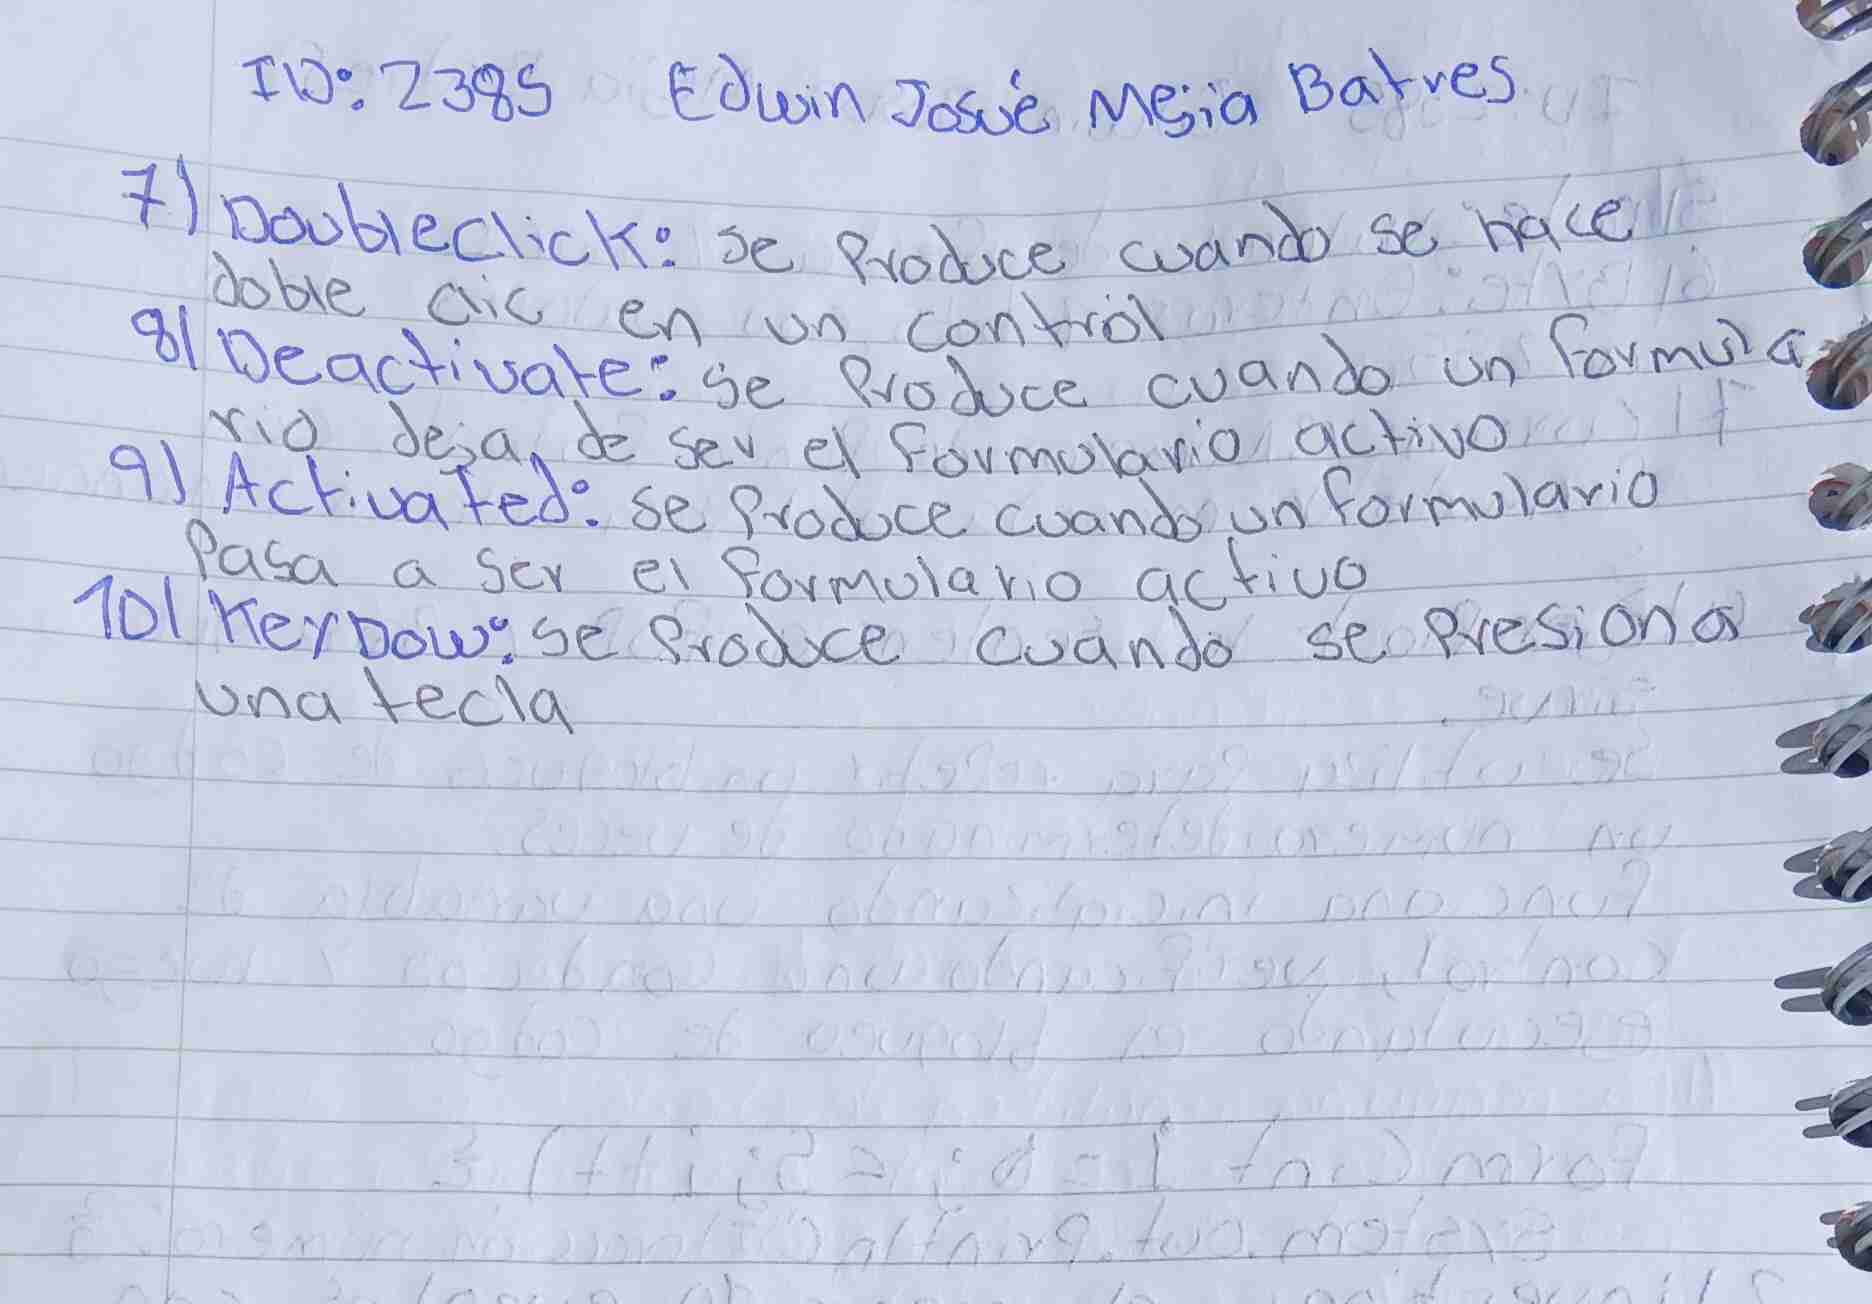 ID: 2385 Edwin Josué Mejia Batres
7) Doubleclick: se Produce cuando se hace
doble clic en un control
8) Deactivate: se Produce cuando un formula
rio deja de ser el formulario activo
9) Activated: se Produce cuando un formulario
Pasa a ser el formulario activo
10) KeyDow: se Produce cuando se Presiona
una tecla